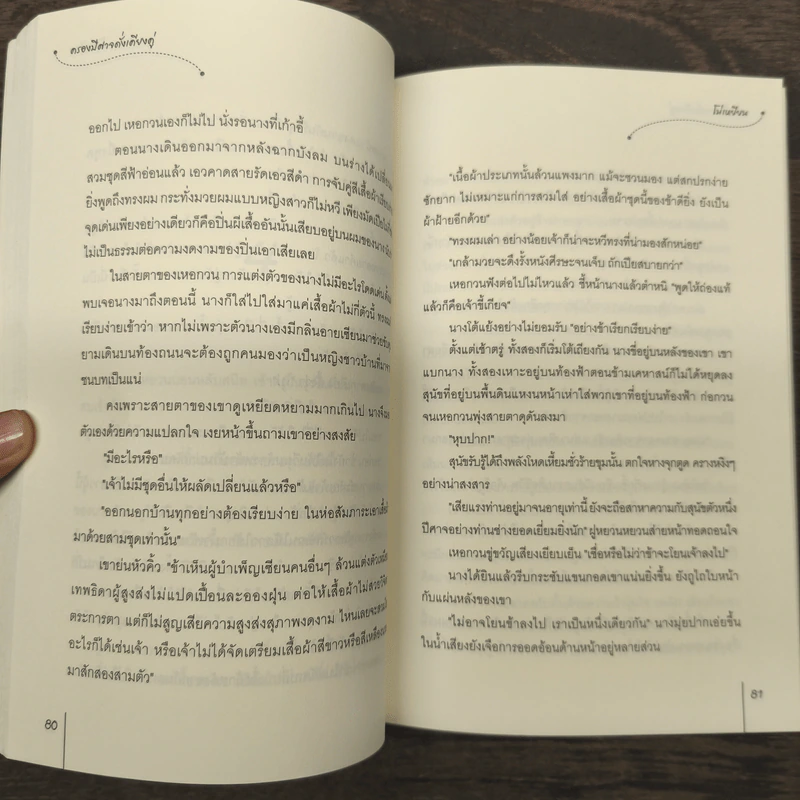 ครองปีศาจดั่งเคียงคู่
ออกไป เหอกวนเองก็ไม่ไป นั่งรอนางที่เก้าอี้
ตอนนางเดินออกมาจากหลังฉากบังลม บนร่างได้เปลี่ยน
สวมชุดสีฟ้าอ่อนแล้ว เอวคาดสายรัดเอวสีดำ การจับคู่สีเสื้อผ้า
ยิ่งพูดถึงทรงผม กระทั่งมวยผมแบบหญิงสาวก็ไม่หวี เพียงมัดเปีย
จุดเด่นเพียงอย่างเดียวก็คือปิ่นผีเสื้ออันนั้นเสียบอยู่บนผมของนาง
ไม่เป็นธรรมต่อความงดงามของปิ่นเอาเสียเลย
ในสายตาของเหอกวน การแต่งตัวของนางไม่มีอะไรโดดเด่น
พบเจอนางมาถึงตอนนี้ นางก็ใส่ไปใส่มาแค่เสื้อผ้าไม่กี่ตัวนี้
เรียบง่ายเข้าว่า หากไม่เพราะตัวนางเองมีกลิ่นอายเซียนมาช่วย
ยามเดินบนท้องถนนจะต้องถูกคนมองว่าเป็นหญิงชาวบ้านที่มาจาก
ชนบทเป็นแน่
คงเพราะสายตาของเขาดูเหยียดหยามมากเกินไป นางจึง
ตัวเองด้วยความแปลกใจ เงยหน้าขึ้นถามเขาอย่างสงสัย
"มีอะไรหรือ"
"เจ้าไม่มีชุดอื่นให้ผลัดเปลี่ยนแล้วหรือ"
"ออกนอกบ้านทุกอย่างต้องเรียบง่าย ในห่อสัมภาระเอาเสื้อผ้า
มาด้วยสามชุดเท่านั้น"
เขาย่นหัวคิ้ว "ข้าเห็นผู้บำเพ็ญเซียนคนอื่นๆ ล้วนแต่งตัว
เทพธิดาผู้สูงส่งไม่แปดเปื้อนละอองฝุ่น ต่อให้เสื้อผ้าไม่สวยวิจิตร
ตระการตา แต่ก็ไม่สูญเสียความสูงส่งสุภาพงดงาม ไหนเลยจะ
อะไรก็ได้เช่นเจ้า หรือเจ้าไม่ได้จัดเตรียมเสื้อผ้าสีขาวหรือสีเหลือง
มาสักสองสามตัว"
80
โม่เหยียน
"เนื้อผ้าประเภทนั้นล้วนแพงมาก แม้จะชวนมอง แต่สกปรกง่าย
ซักยาก ไม่เหมาะแก่การสวมใส่ อย่างเสื้อผ้าชุดนี้ของข้าดียิ่ง ยังเป็น
ผ้าฝ้ายอีกด้วย"
"ทรงผมเล่า อย่างน้อยเจ้าก็น่าจะหวีทรงที่น่ามองสักหน่อย"
"เกล้ามวยจะดึงรั้งหนังศีรษะจนเจ็บ ถักเปียสบายกว่า"
เหอกวนฟังต่อไปไม่ไหวแล้ว ชี้หน้านางแล้วตำหนิ "พูดให้ถ่องแท้
แล้วก็คือเจ้าขี้เกียจ"
นางโต้แย้งอย่างไม่ยอมรับ "อย่างข้าเรียกเรียบง่าย"
ตั้งแต่เช้าตรู่ ทั้งสองก็เริ่มโต้เถียงกัน นางขี่อยู่บนหลังของเขา เขา
แบกนาง ทั้งสองเหาะอยู่บนท้องฟ้าตอนข้ามเคหาสน์ก็ไม่ได้หยุดลง
สุนัขที่อยู่บนพื้นดินแหงนหน้าเห่าใส่พวกเขาที่อยู่บนท้องฟ้า ก่อกวน
จนเหอกวนพุ่งสายตาดุดันลงมา
"หุบปาก!"
สุนัขรับรู้ได้ถึงพลังโหดเหี้ยมชั่วร้ายขุมนั้น ตกใจหางจุกตูด ครางหงิงๆ
อย่างน่าสงสาร
"เสียแรงท่านอยู่มาจนอายุเท่านี้ ยังจะถือสาหาความกับสุนัขตัวหนึ่ง
ปีศาจอย่างท่านช่างยอดเยี่ยมยิ่งนัก" ผู่หยวนหยวนส่ายหน้าทอดถอนใจ
เหอกวนขู่ขวัญเสียงเยียบเย็น "เชื่อหรือไม่ว่าข้าจะโยนเจ้าลงไป"
นางได้ยินแล้วรีบกระชับแขนกอดเขาแน่นยิ่งขึ้น ยังถูไถใบหน้า
กับแผ่นหลังของเขา
"ไม่อาจโยนข้าลงไป เราเป็นหนึ่งเดียวกัน" นางมุ่ยปากเอ่ยขึ้น
ในน้ำเสียงยังเจือการออดอ้อนด้านหน้าอยู่หลายส่วน
81